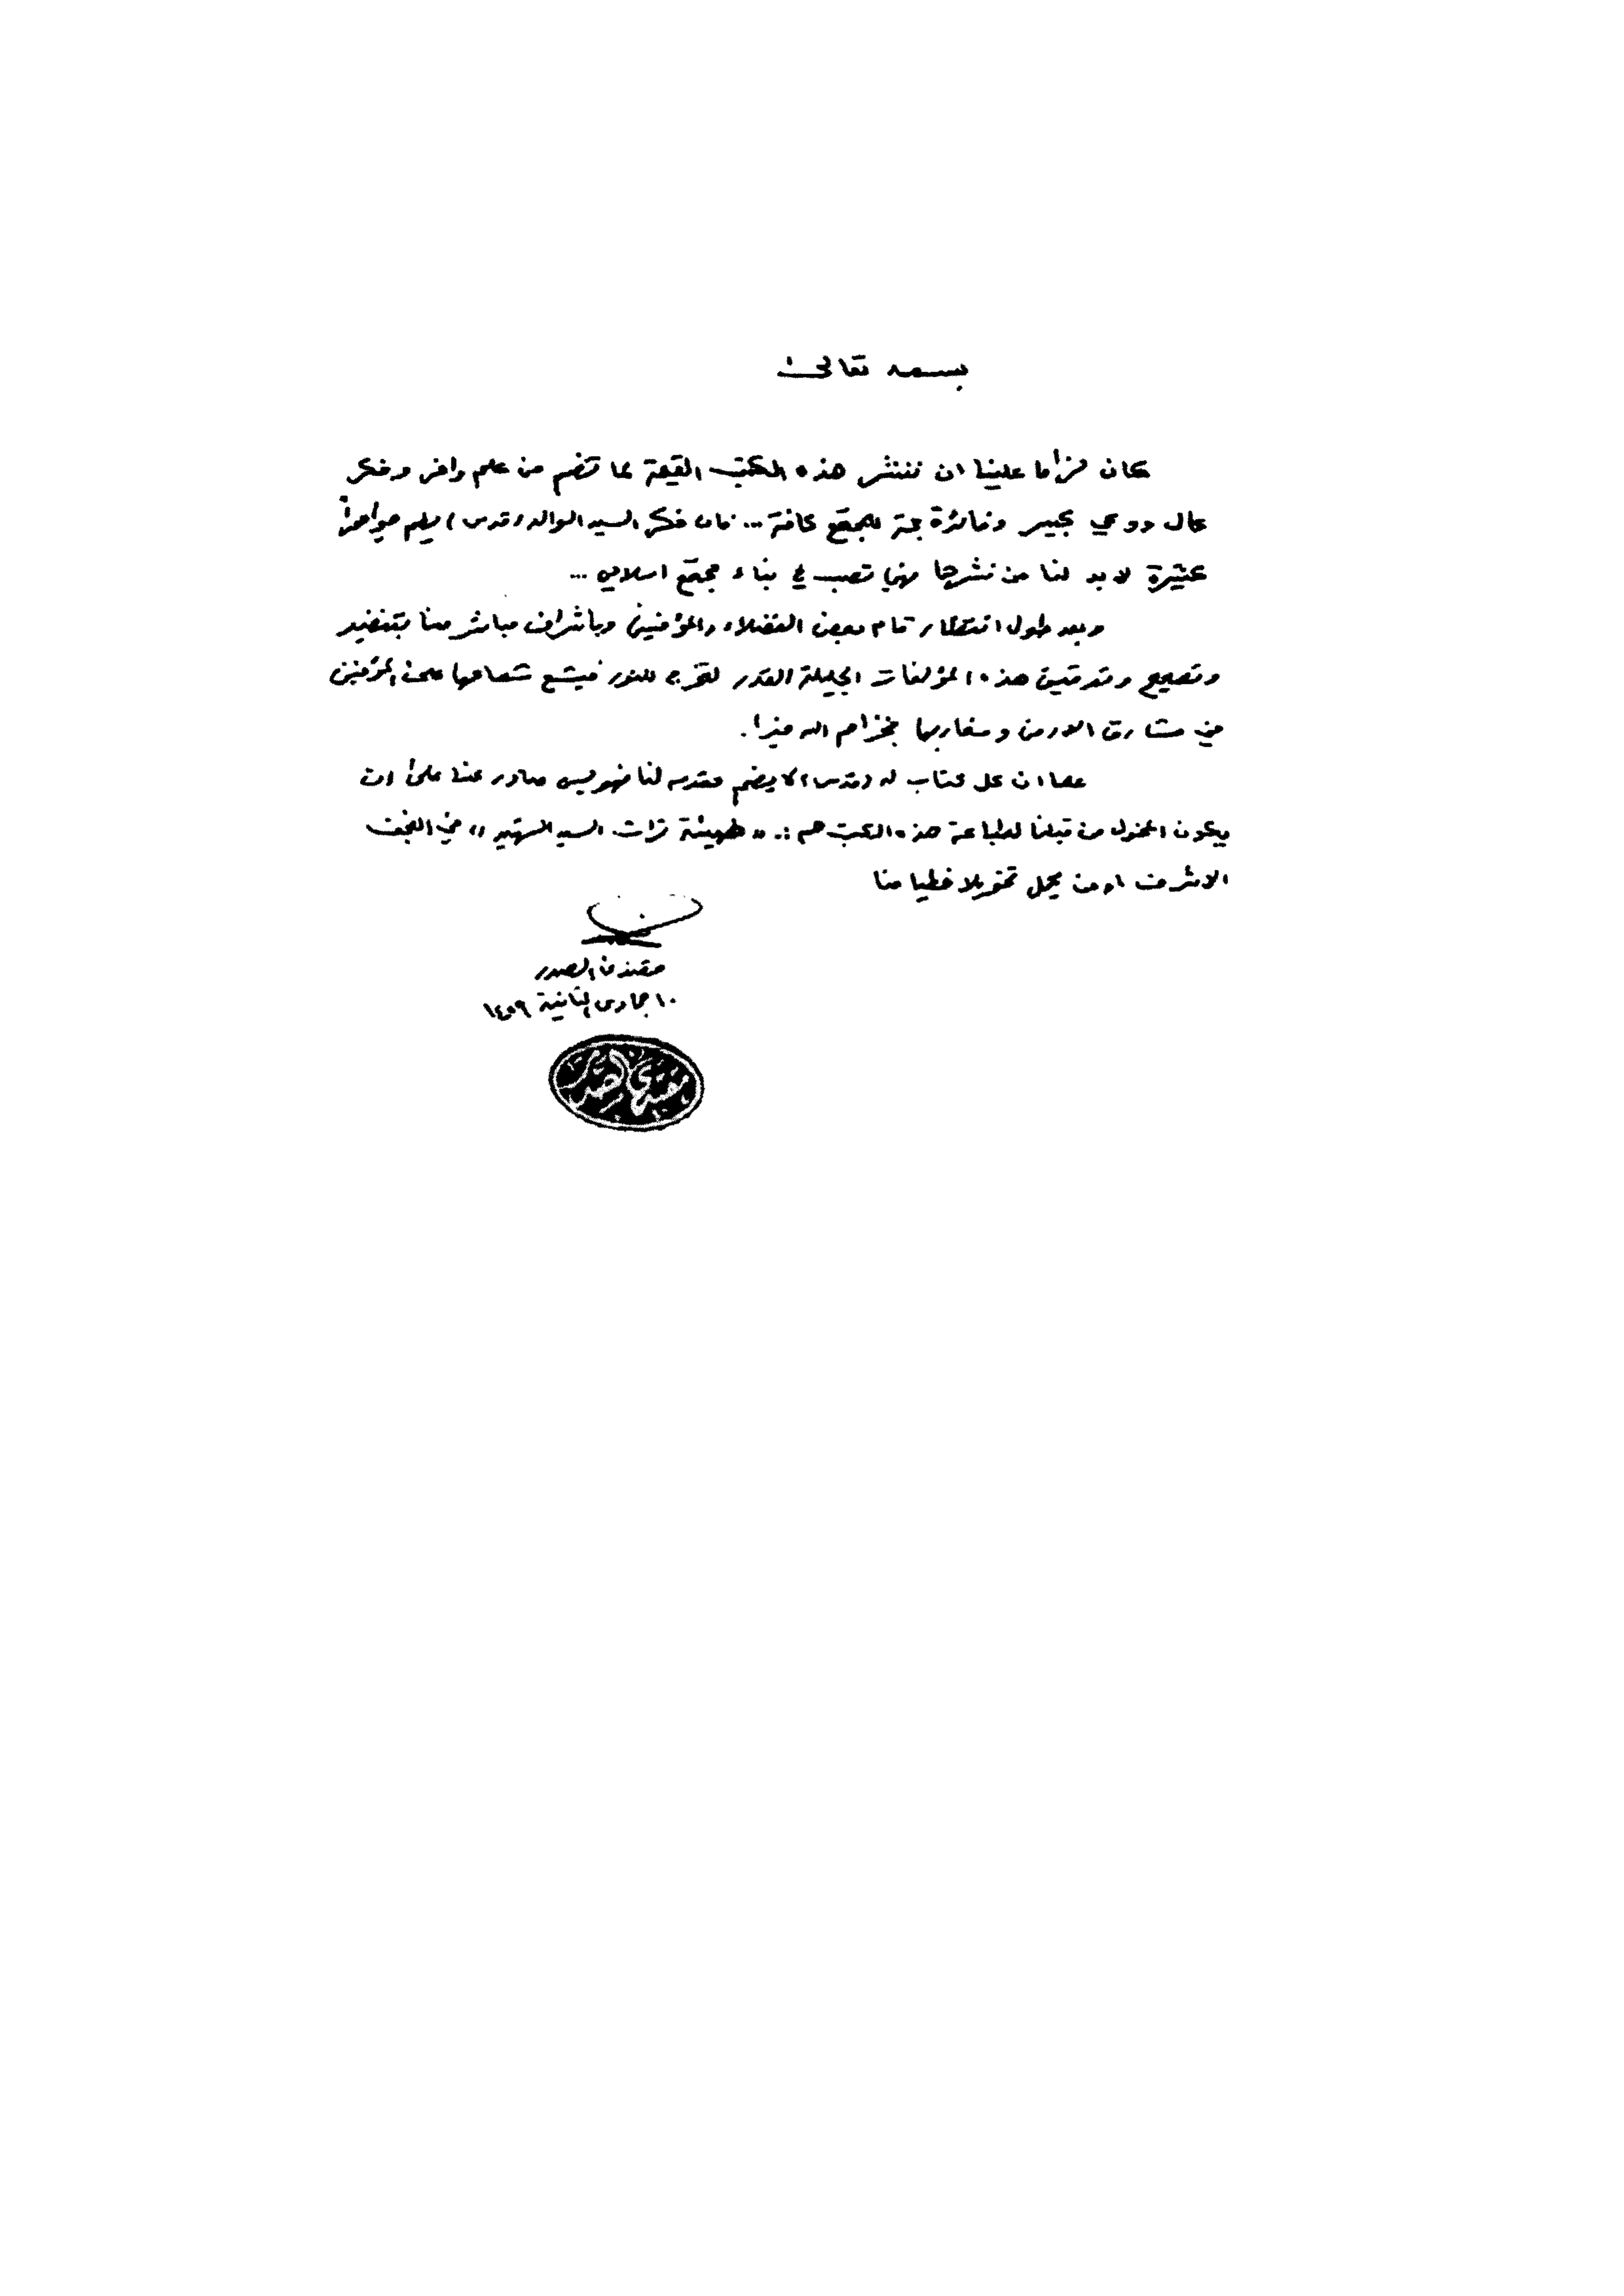 بسمه تعالى
كان لزاما علينا ان ننشر هذه الكتب القيمة لما تضم من علم وافر وفكر
عال ووعي كبير وفائدة جمة للمجتمع كافة ... فان فكر السيد الوالد (قدس)
كثيرة لابد لنا من نشرها فهي تصب في بناء مجتمع اسلامي ...
وبعد طول انتظار قام بعض الفضلاء والمؤمنين وباشراف مباشر منا بتنضيد
وتصحيح وتدقيق هذه المؤلفات الجليلة القدر لتخرج للنور فيشع شعاعها على المؤمنين
في مشارق الارض ومغاربها فجزاهم الله خيرا.
كما ان كل كتاب له (قدس) لا يضم مقدمه لنا فهو ليس صادر عنا على ان
يكون المخول من قبلنا لطباعة هذه الكتب هم :. "هيئة تراث السيد الشهيد" في النجف
الاشرف او من يحمل تخويلا خطيا منا
مقتدى الصدر
١٠ جمادى الثانية ١٤٥٩
مقتدى الصدر